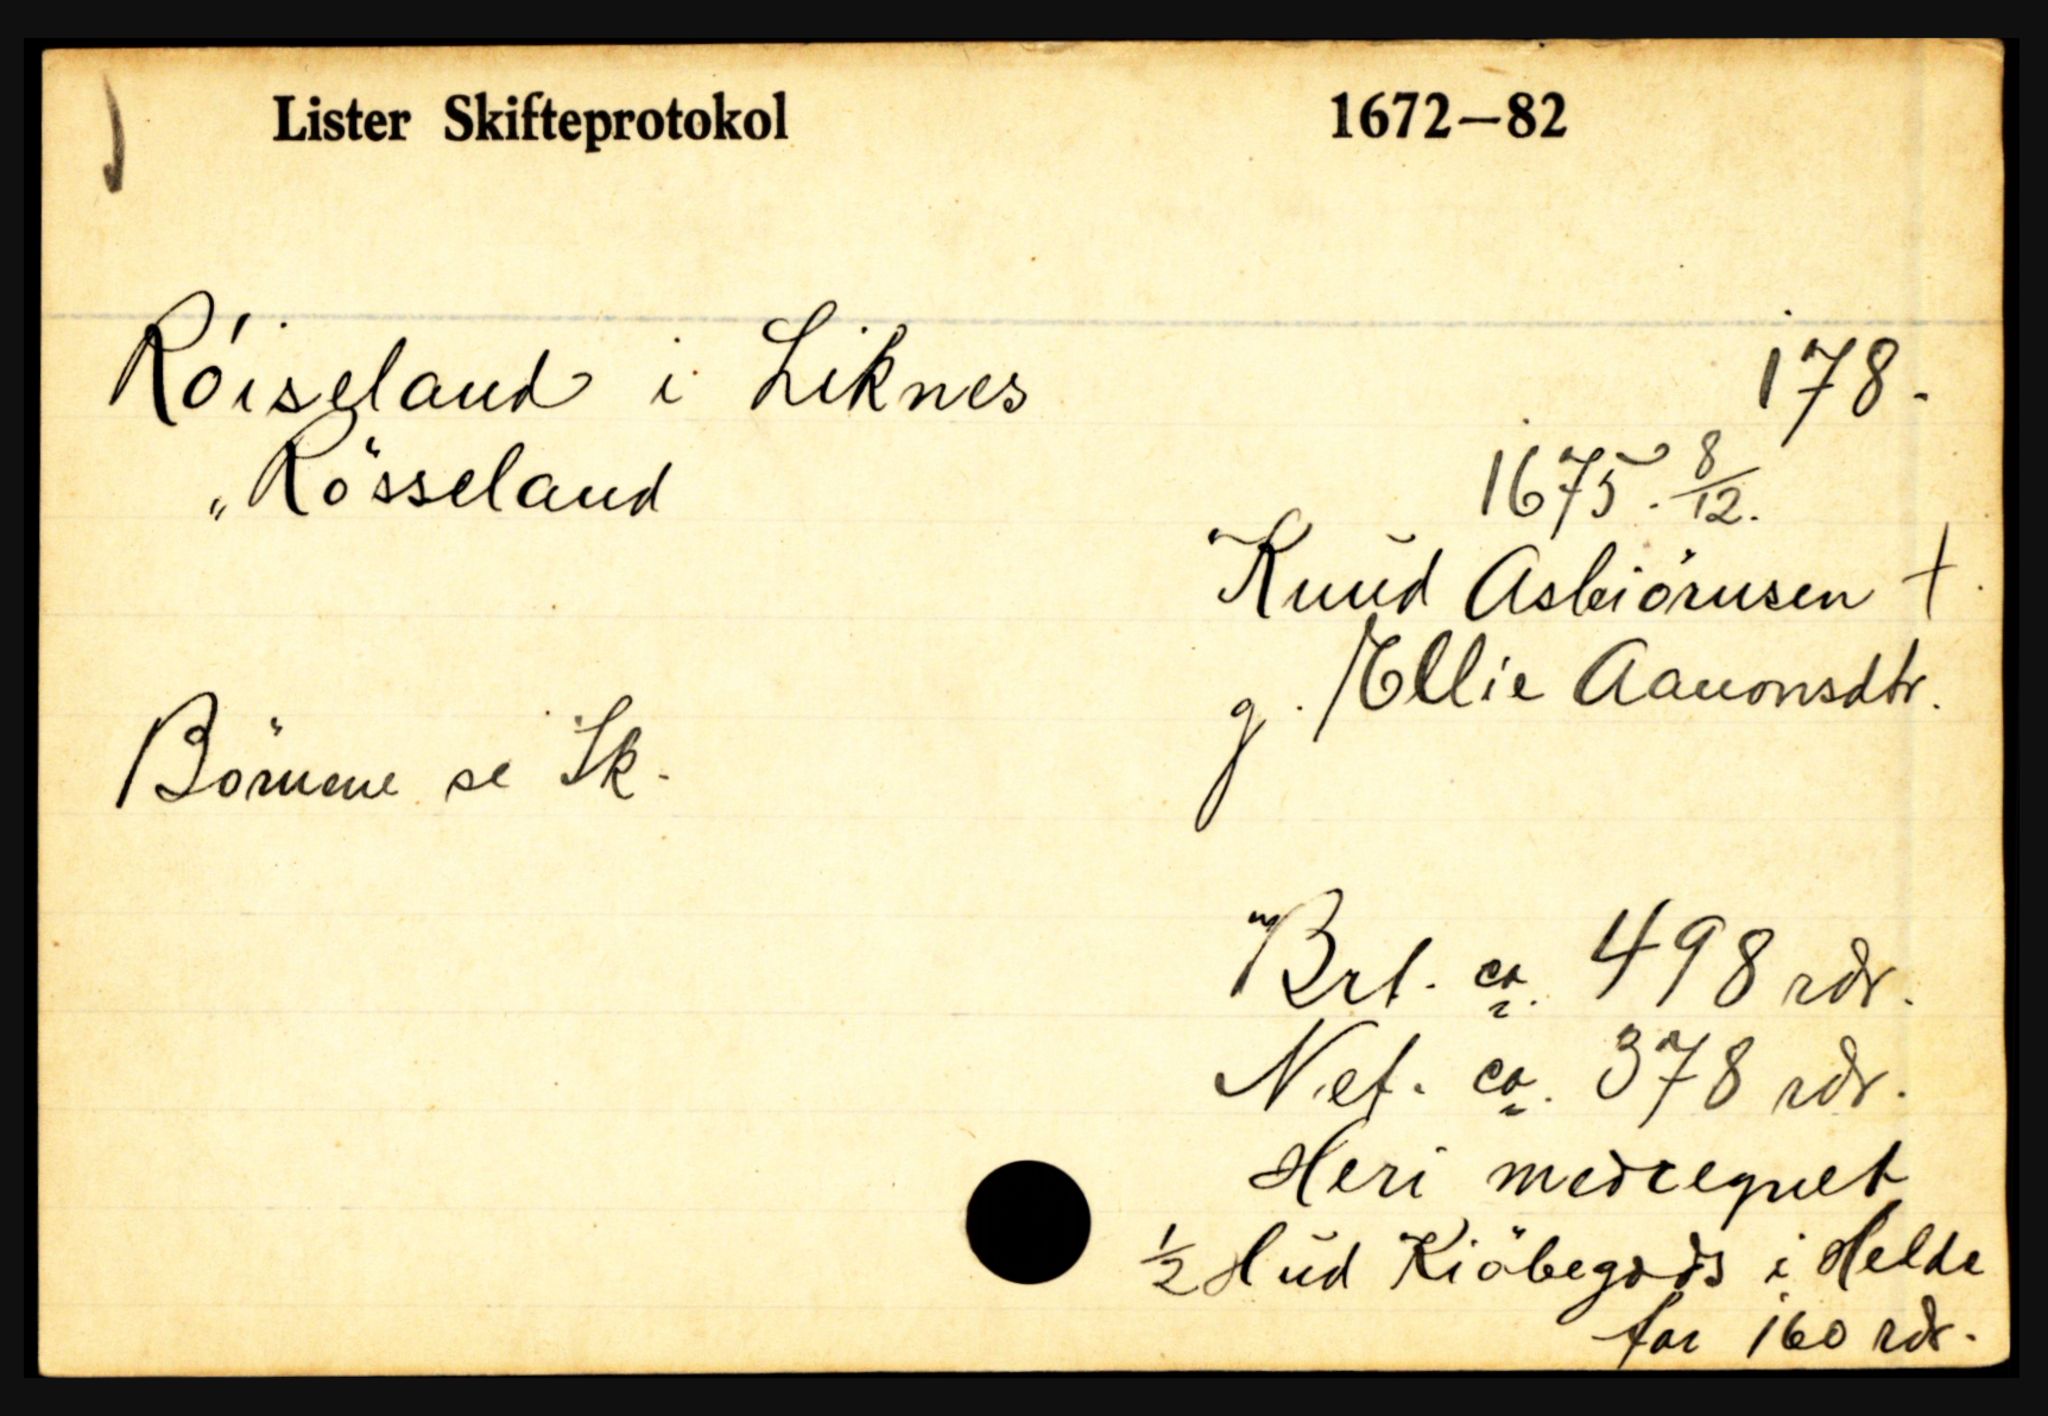 Lister Skifteprotokol 1672—82
Röiseland i Liknes 178.
"Rösseland
1675. 8/12.
Knud Asbiörnsen †
g. Ellie Aanonsdtr.
Börnene se Sk.
Brt. ca. 498 rdr.
Net. ca. 378 rdr.
Heri medregnet
1/2 Hud Kiöbegods i Helde
for 160 rdr.